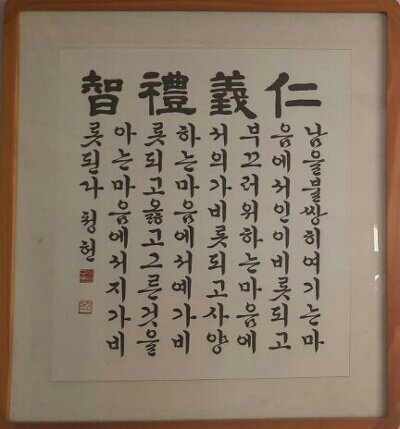 仁義禮智
남을불쌍히여기는마
음에서인이비롯되고
부끄러워하는마음에
서의가비롯되고사양
하는마음에서예가비
롯되고옳고그른것을
아는마음에서지가비
롯된다 청헌